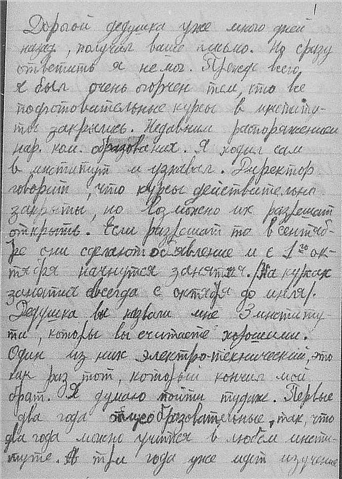 Дорогой дедушка уже много дней
назад, получил ваше письмо. Но сразу
ответить я не мог. Прежде всего,
я был очень огорчен тем, что все
подготовительные курсы в институ-
ты закрылись. Недавним распоряжением
нар. ком. образования. Я ходил сам
в институт и узнавал. Директор
говорит, что курсы действительно
закрыты, но возможно их разрешат
открыть. Если разрешат то в сентяб-
ре они сделают объявление и с 1го ок-
тября начнутся занятия. На курсах
занятия всегда с октября до июля.
Дедушка вы назвали мне 3 институ-
та, которы вы считаете хорошими.
Один из них электро-технический, это
как раз тот, который кончил мой
брат. Я думаю пойти туда же. Первые
два года общеобразовательные, так, что
два года можно учится в любом инсти-
туте. А три года уже идет изучение